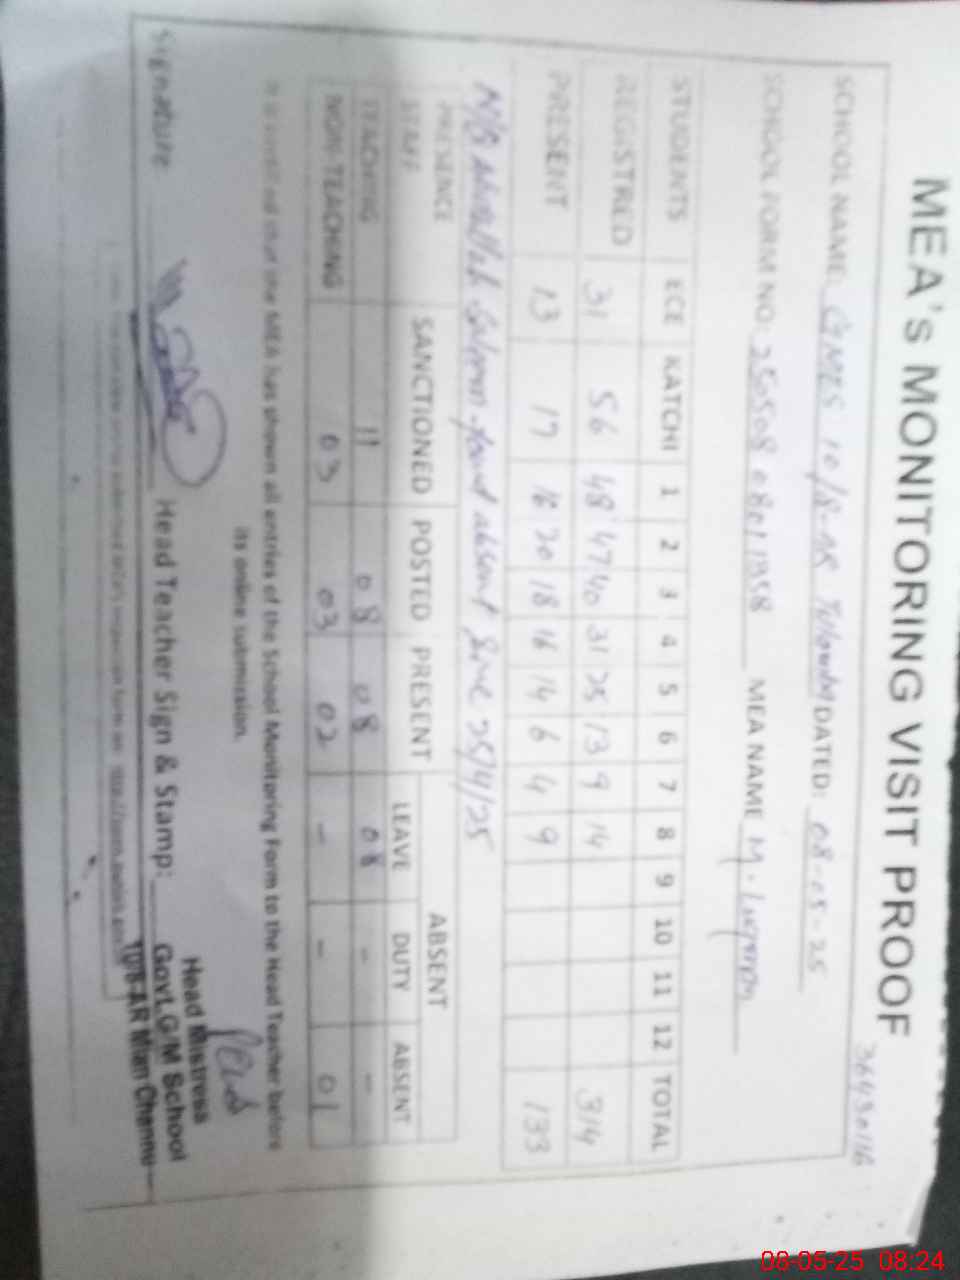 36430116
MEA's MONITORING VISIT PROOF
SCHOOL NAME: 10/8-AR DATED: 08-05-25
SCHOOL FORM NO: MEA NAME M.
STUDENTS ECE KATCHI 1 2 3 4 5 6 7 8 9 10 11 12 TOTAL
REGISTRED 31 56 48 47 40 31 25 13 9 14 314
PRESENT 13 17 16 20 18 16 14 6 4 9 133
N/Q found absent since 25/4/25
PRESENCE STAFF SANCTIONED POSTED PRESENT ABSENT
LEAVE DUTY ABSENT
TEACHING 11 08 08 08 - -
NON-TEACHING 03 03 02 - - 01
It is certified that the MEA has shown all entries of the School Monitoring Form to the Head Teacher before
its online submission.
Signature Head Teacher Sign & Stamp:
Head Mistress
Govt. G/M School
10/8-AR Mian Channu
08-05-25 08:24